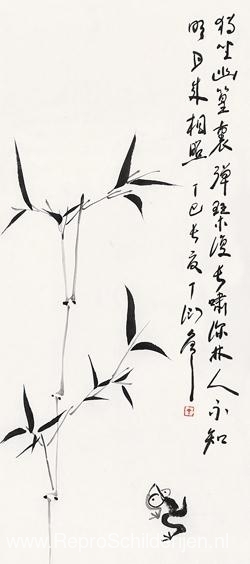 独坐幽篁裏弹琴復长嘯深林人不知
明月来相照 丁巳长夏丁衍庸
www.ReproSchilderijen.nl